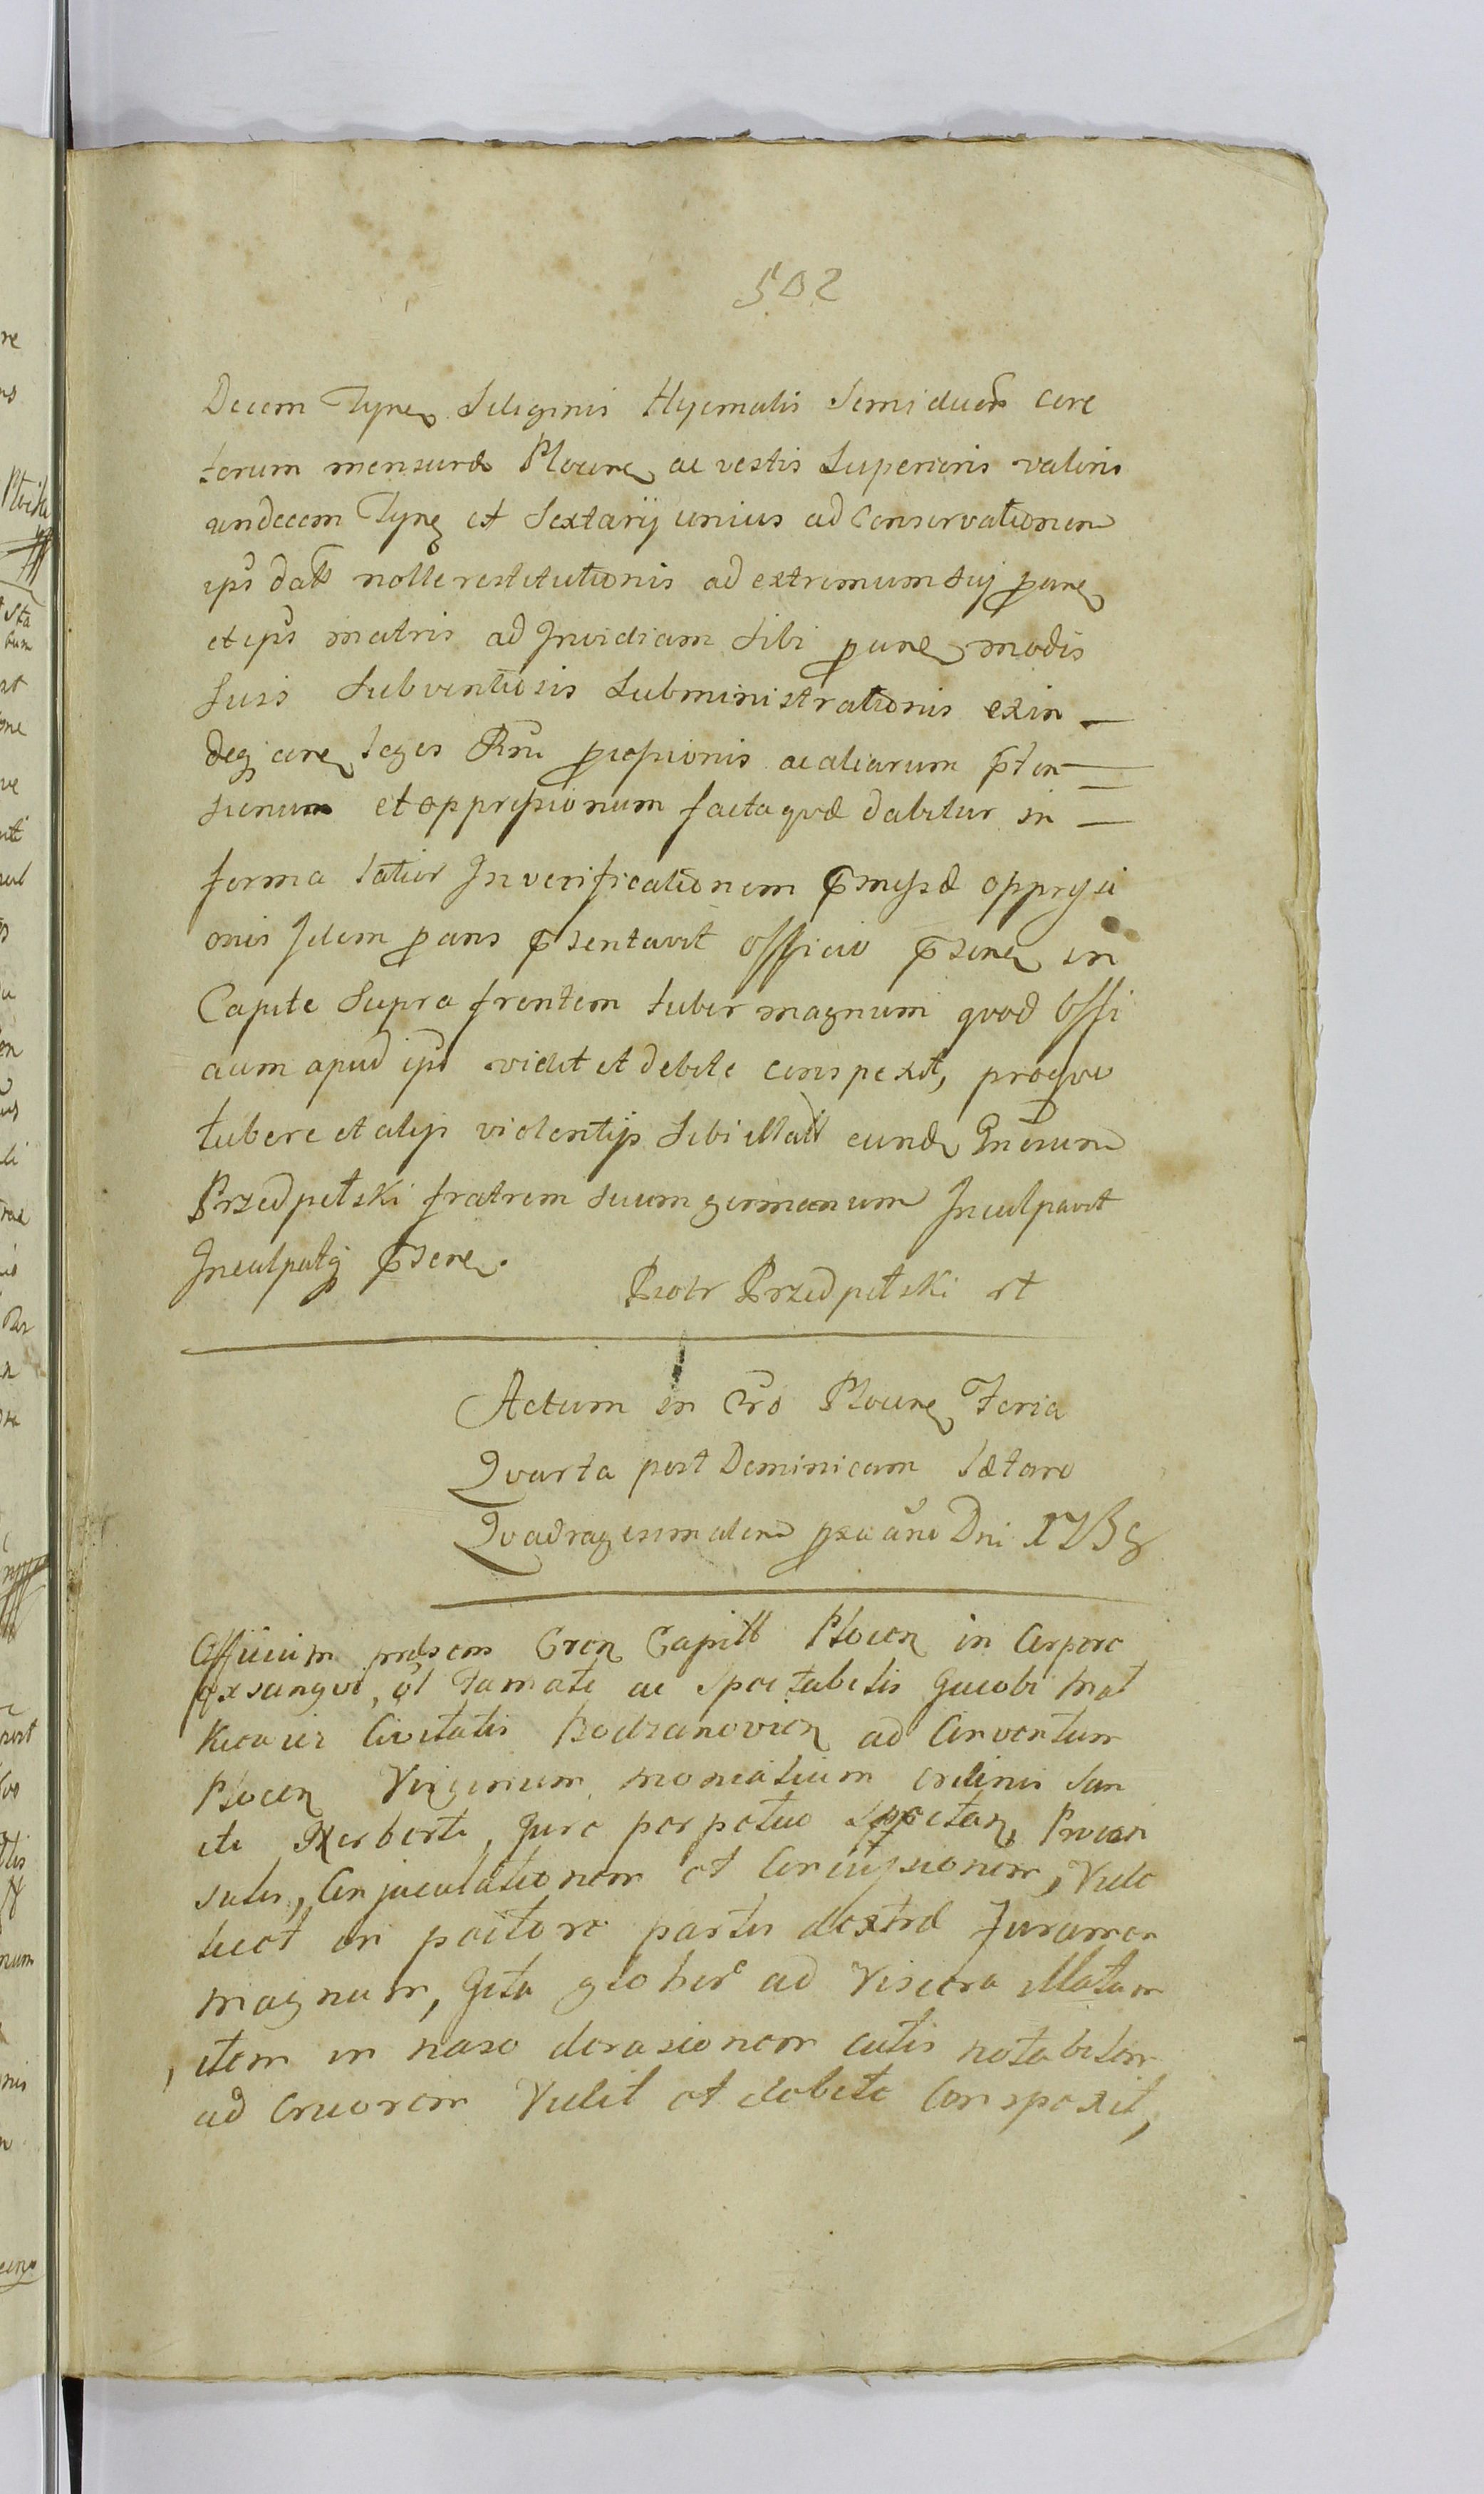 502
Decem Tyn Siliginis Hyemalis Semiducen core
torum mensuræ Plocen ac vestis Superioris valoris
undecem Tyn et Sextarij unius ad Conservationem
ips dat nolle restitutionis ad extremum suj
et ips matris ad Invidiam Sibi modis
suis Subventiosis Subministrationis exin
deq leges aealiarum pten
sionum et oppressionum facta quæ dabitur in
forma latior In verificationem pmissæ oppressi
onis Idem pans psentavit officio psen in
Capite Supra frontem tuber magnum quod Offi
cium apud ips vidit et debite conspexit, proquo
tubere et alijs violentijs Sibi illat eund Gnosum
Przedpełski fratrem suum germanum Inculpavit
Inculpatq psen.
Piotr Przedpełski rt
Actum in Cro Plocen Feria
Quarta post Dominicam Lætare
Quadragesimalem pxa ano Dni 1758
Officium præsens Cren Capitl Plocen in Corpore
exsangui, ol Famati ac Spectabilis Jacobi Mał
kiewicz Civitatis Bodzanovien ad Conventum
Plocen Virginum monialium ordinis San
cti Norberti, Jure perpetuo Spectan, Procon
sulis, Conjaculationem et Concussionem, Vide
licet in pectore partis dextræ Foramen
magnum, Icta globis ad Viscera illatum
item in naso derasionem cutis notabilem
ad Cruorem Vidit et debite Conspexit,